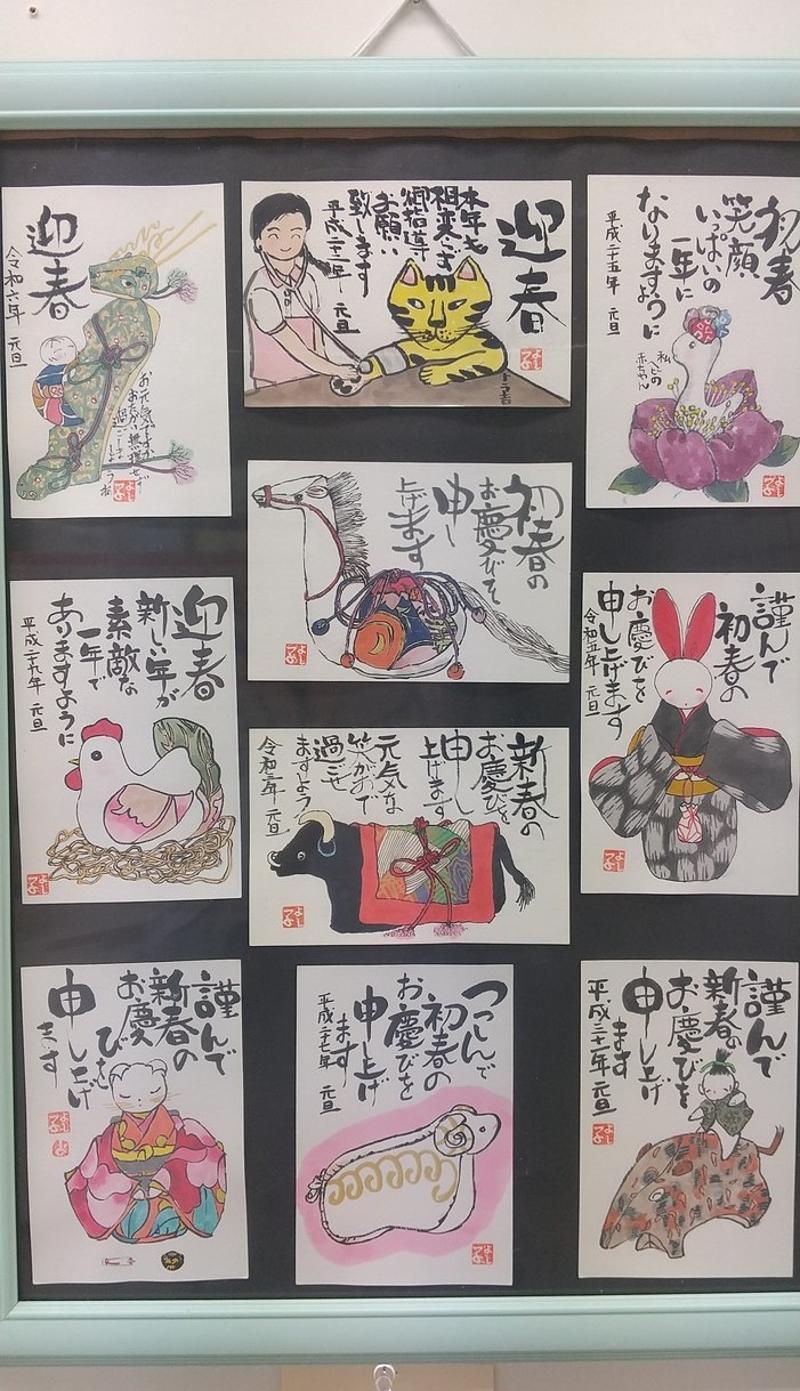 迎春
令和六年 元旦
お元気ですか
迎春
本年も
相変らず
御指導
お願い
致します
平成二十二年 元旦
トラ吉
よし
初春
笑顔
いっぱいの
一年に
なりますように
平成二十五年 元旦
私
ヘビの
赤ちゃん
初春の
お慶びを
申し
上げます
迎春
新しい年が
素敵な
一年で
ありますように
平成二十九年 元旦
謹んで
初春の
お慶びを
申し上げます
令和五年 元旦
新春の
お慶びを
申し
上げます
元気な
笑がおで
過ごせ
ますよう
令和三年 元旦
謹んで
新春の
お慶びを
申し上げ
ます
つつしんで
初春の
お慶びを
申し上げ
ます
平成二十七年 元旦
謹んで
新春の
お慶びを
申し上げ
ます
平成三十一年 元旦